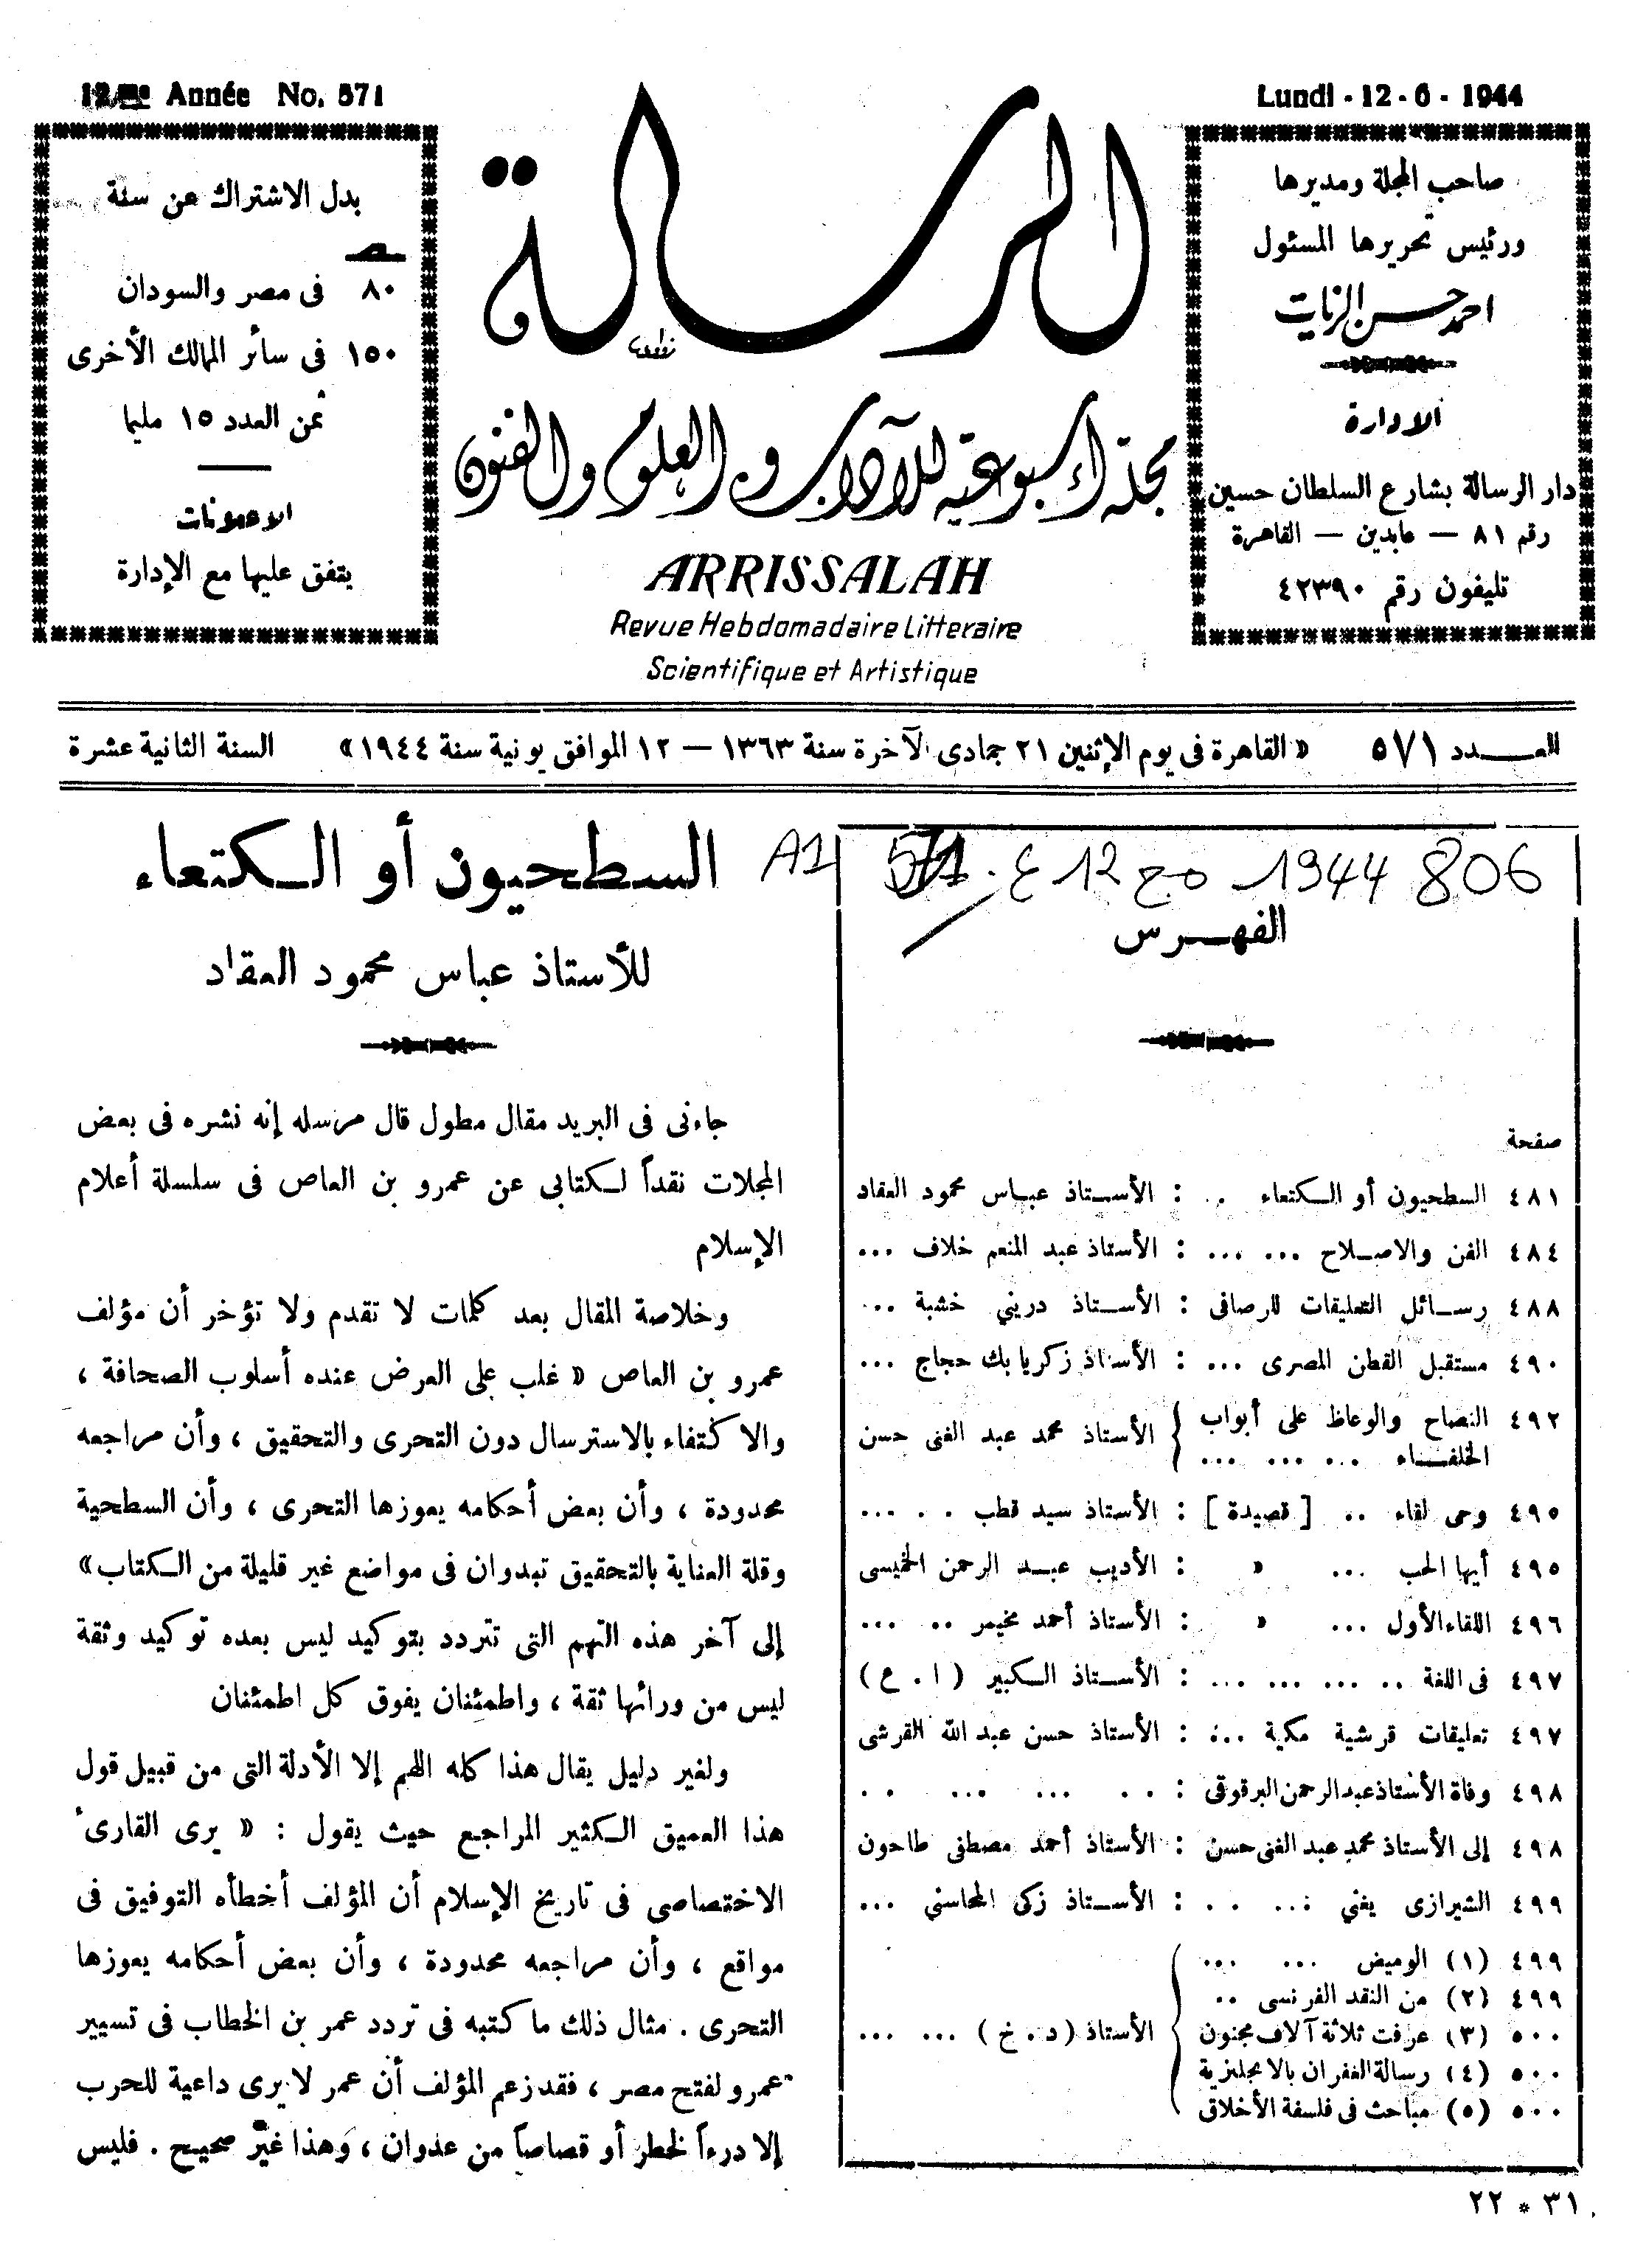 12me Année No. 571
Lundi - 12 - 6 - 1944
صاحب المجلة ومديرها
ورئيس تحريرها المسئول
احمد حسن الزيات
الادارة
دار الرسالة بشارع السلطان حسين
رقم ٨١ — عابدين — القاهرة
تليفون رقم ٤٢٣٩٠
الرسالة
مجلة أسبوعية للآداب والعلوم والفنون
ARRISSALAH
Revue Hebdomadaire Litteraire
Scientifique et Artistique
بدل الاشتراك عن سنة
ص
٨٠ فى مصر والسودان
١٥٠ فى سائر الممالك الأخرى
ثمن العدد ١٥ مليما
الاعلانات
يتفق عليها مع الإدارة
العـــدد ٥٧١ « القاهرة فى يوم الإثنين ٢١ جمادى الآخرة سنة ١٣٦٣ — ١٢ الموافق يونية سنة ١٩٤٤ » السنة الثانية عشرة
806 1944 مج 12 ع 571 A1
الفهـــرس
صفحة
٤٨١ السطحيون أو الـكتعاء .. : الأســتاذ عبـاس محمود العقاد
٤٨٤ الفن والاصــلاح ... ... : الأستاذ عبد المنعم خلاف ...
٤٨٨ رســائل التعليقات للرصافى : الأســتاذ درينى خشبة ...
٤٩٠ مستقبل القطن المصرى ... : الأستاذ زكريا بك حجاج ...
٤٩٢ النصاح والوعاظ على أبواب
الخلفــاء ... ... ... } الأستاذ محمد عبد الغنى حسن
٤٩٥ وحى لقاء .. [ قصيدة ] : الأستاذ سيد قطب . . ...
٤٩٥ أيها الحب ... » : الأديب عبــد الرحمن الخميسى
٤٩٦ اللقاء الأول ... » : الأستاذ أحمد مخيمر .. ...
٤٩٧ فى اللغة .. ... ... ... : الأســتاذ الـكبير ( ا . ع )
٤٩٧ تعليقات قرشية مكية ... : الأستاذ حسن عبد الله القرشى
٤٩٨ وفاة الأستاذ عبد الرحمن البرقوقى : . . ... ... . .
٤٩٨ إلى الأستاذ محمد عبد الغنى حسن : الأستاذ أحمد مصطفى طاحون
٤٩٩ الشيرازى يغنى ... . . : الأســتاذ زكى المحاسنى ...
٤٩٩ (١) الوميض ... ...
٤٩٩ (٢) من النقد الفرنسى ..
٥٠٠ (٣) عرفت ثلاثة آلاف مجنون } الأستاذ ( د . خ ) ... ...
٥٠٠ (٤) رسالة الغفران بالانجليزية
٥٠٠ (٥) مباحث فى فلسفة الأخلاق
٣١ * ٢٢
السطحيون أو الـكتعاء
للأستاذ عباس محمود العقاد
جاءنى فى البريد مقال مطول قال مرسله إنه نشره فى بعض
المجلات نقداً لـكتابى عن عمرو بن العاص فى سلسلة أعلام
الإسلام
وخلاصة المقال بعد كلمات لا تقدم ولا تؤخر أن مؤلف
عمرو بن العاص « غلب على العرض عنده أسلوب الصحافة ،
والاكتفاء بالاسترسال دون التحرى والتحقيق ، وأن مراجعه
محدودة ، وأن بعض أحكامه يعوزها التحرى ، وأن السطحية
وقلة العناية بالتحقيق تبدوان فى مواضع غير قليلة من الـكتاب »
إلى آخر هذه التهم التى تتردد بتوكيد ليس بعده توكيد وثقة
ليس من ورائها ثقة ، واطمئنان يفوق كل اطمئنان
ولغير دليل يقال هذا كله اللهم إلا الأدلة التى من قبيل قول
هذا العميق الـكثير المراجع حيث يقول : « يرى القارئ
الاختصاصى فى تاريخ الإسلام أن المؤلف أخطأه التوفيق فى
مواقع ، وأن مراجعه محدودة ، وأن بعض أحكامه يعوزها
التحرى . مثال ذلك ما كتبه فى تردد عمر بن الخطاب فى تسيير
عمرو لفتح مصر ، فقد زعم المؤلف أن عمر لا يرى داعية للحرب
إلا درءاً لخطر أو قصاصاً من عدوان ، وهذا غير صحيح . فليس